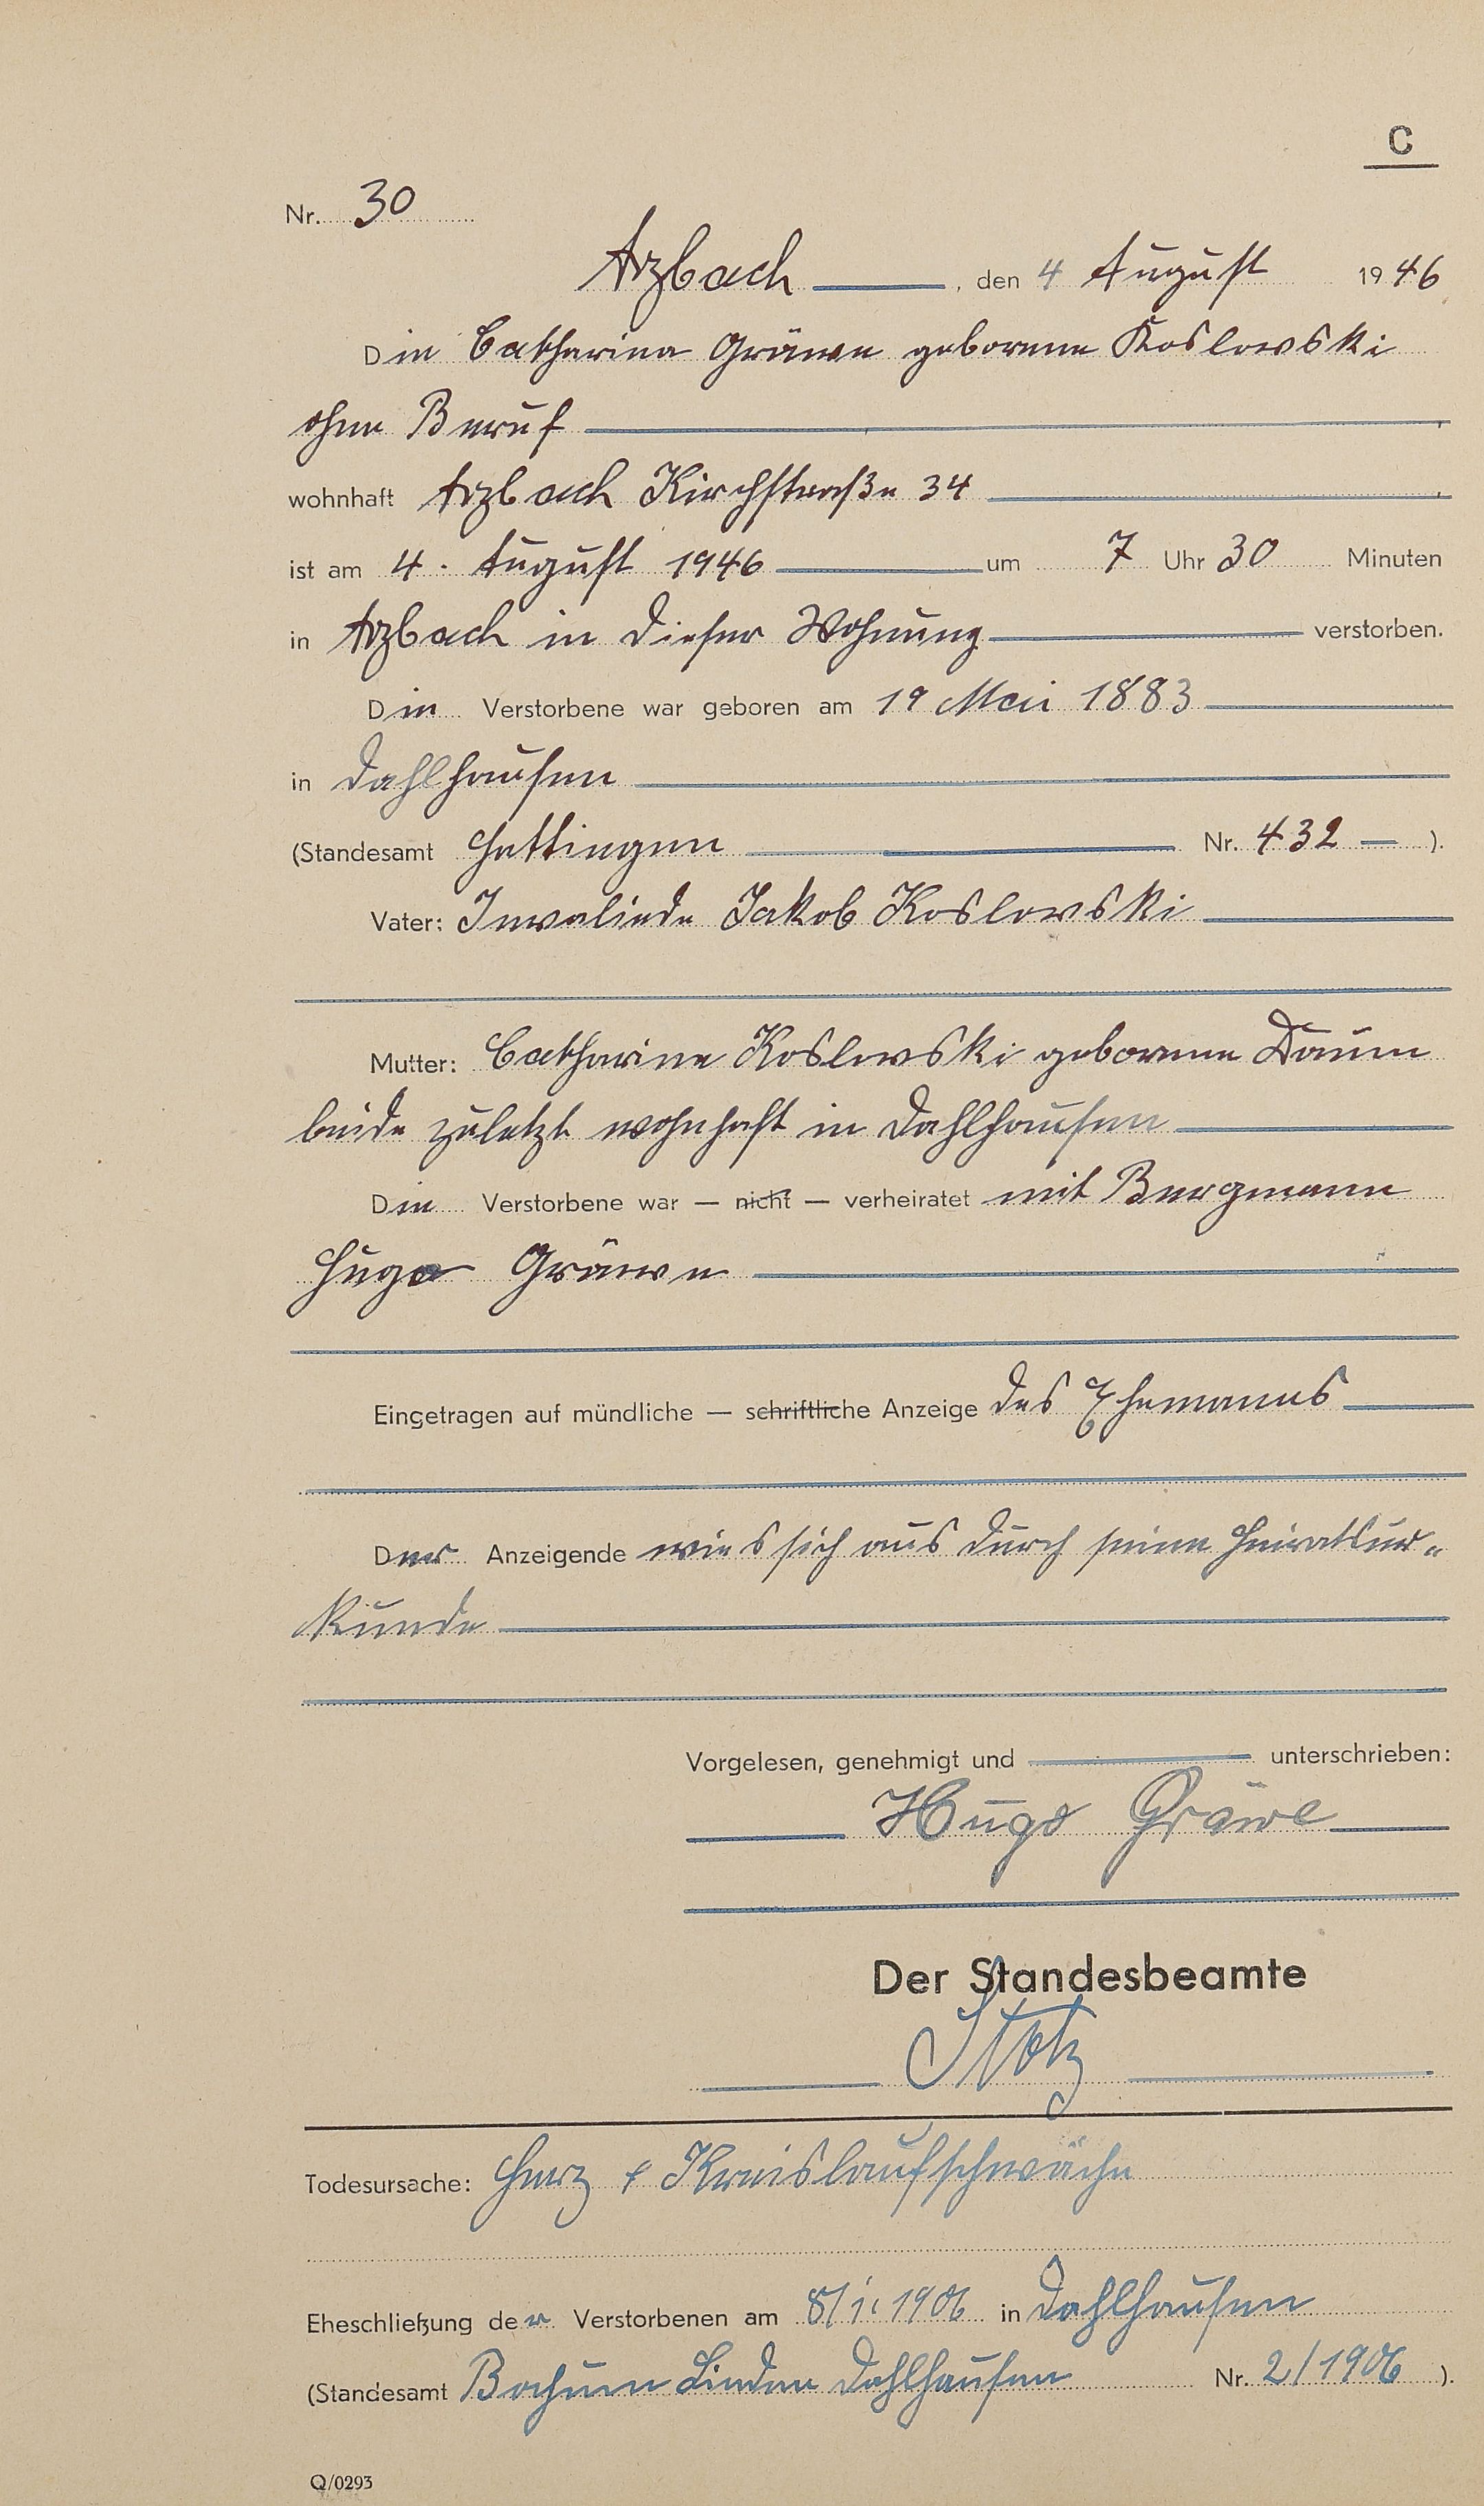 C
Nr. 30
Arzbach, den 4 August 1946
Die Catharina Gräwe geborene Koslowski
ohne Beruf,
wohnhaft Arzbach Kirchstraße 34,
ist am 4. August 1946 um 7 Uhr 30 Minuten
in Arzbach in dieser Wohnung verstorben.
Die Verstorbene war geboren am 19 Mai 1883
in Dahlhausen
(Standesamt Hattingen Nr. 432 — ).
Vater: Invaliede Jakob Koslowski
Mutter: Catharine Koslowski geborene Daum
beide zuletzt wohnhaft in Dahlhausen
Die Verstorbene war — nicht — verheiratet mit Bergmann
Hugo Gräwe
Eingetragen auf mündliche — schriftliche Anzeige des Ehemannes
Der Anzeigende wies sich aus durch seine Heiratsur„
kunde
Vorgelesen, genehmigt und unterschrieben:
Hugo Gräwe
Der Standesbeamte
Stotz
Todesursache: Herz & Kreislaufschwäche
Eheschließung der Verstorbenen am 8/1. 1906 in Dahlhausen
(Standesamt Bochum Linden Dahlhausen Nr. 2/1906 ).
Q/0293